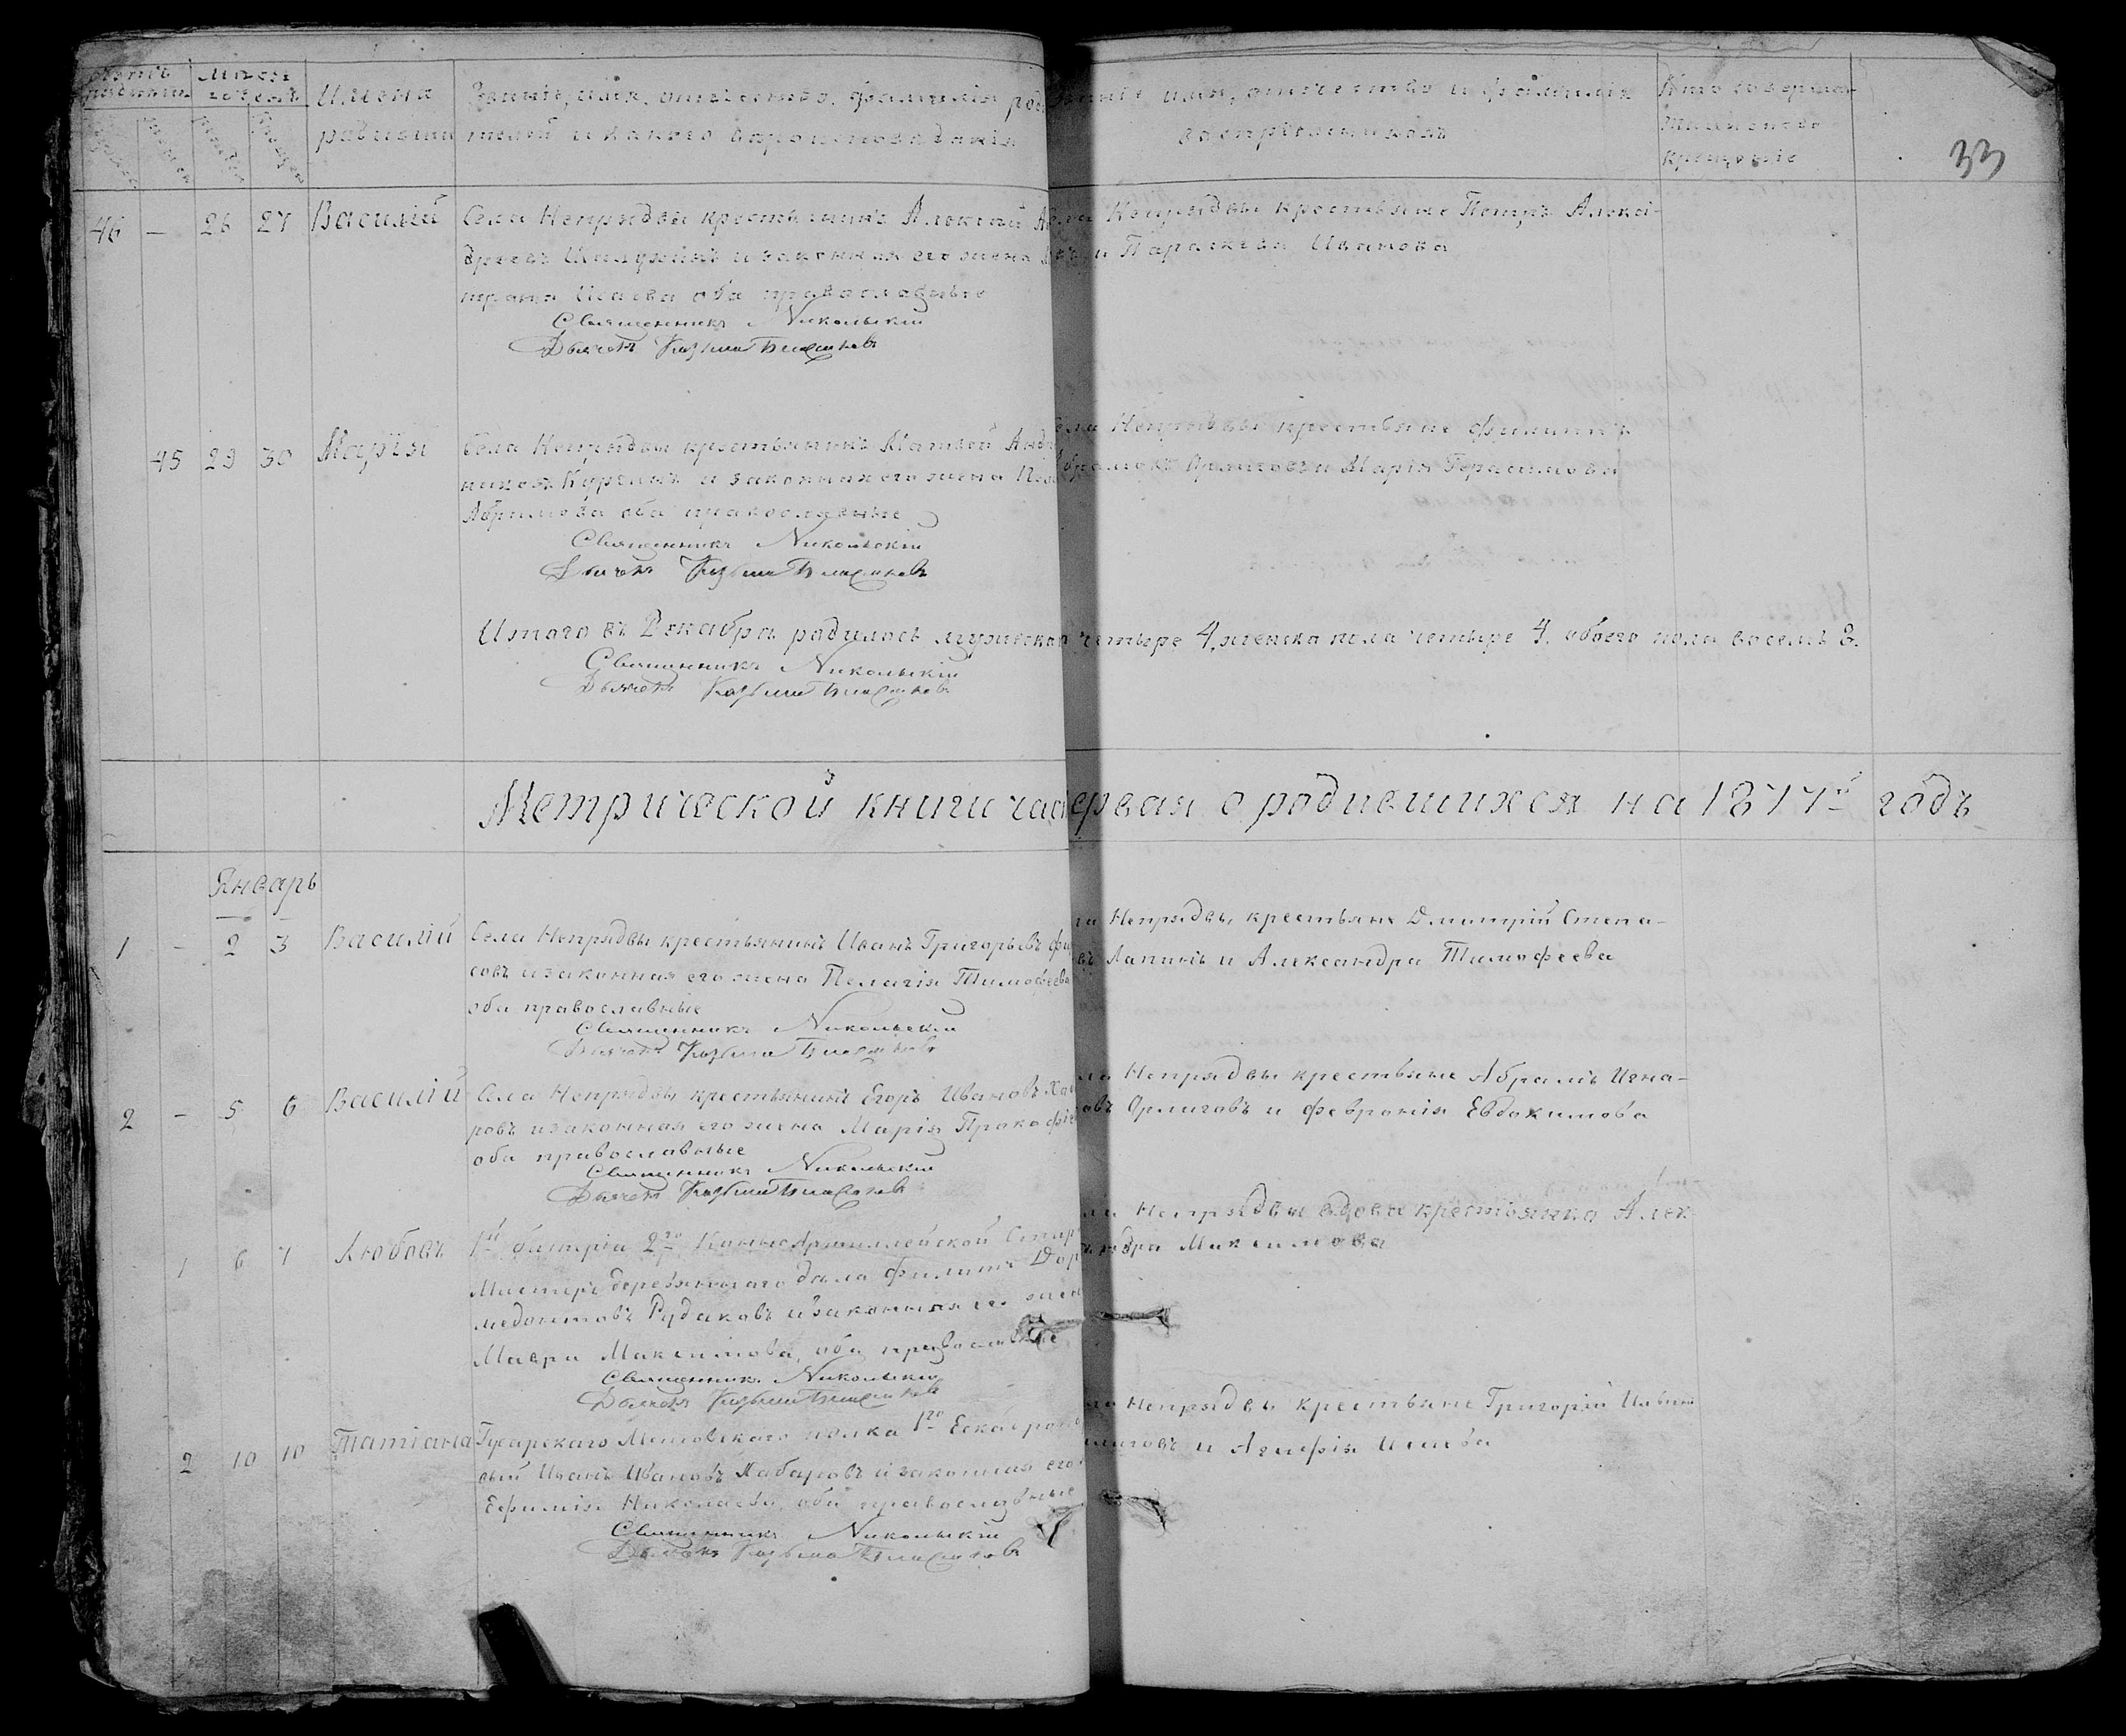 Имена
родившихся
Званіе, имя, отчество, фамилія роди
телей и какого вѣроисповѣданія
Званіе имя, отчество и фамилія
воспріемниковъ
Кто совершалъ
таинство
крещенія
33
46 — 26 27 Василій
Села Непрядвы крестьянинъ Алексѣй
дреевъ и законная его жена
Исаева оба православные
Священникъ Никольскій
Дьячекъ Козьма
Непрядвы крестьяне Петръ Алексѣ-
и Параскева Иванова
45 29 30 Марія
Села Непрядвы крестьянинъ Матвей
и законная его жена
Абрамова оба православные
Священникъ Никольскій
Дьячекъ Козьма
Непрядвы крестьяне Филиппъ
Орлиговъ и Марія Герасимова
Итого въ Декабрѣ родилось мужеска четыре 4, женска пола четыре 4, обоего пола восемь 8.
Священникъ Никольскій
Дьячекъ Козьма
Метрической книги час ервая о родившихся на 1877й годъ
Январь
1 — 2 3 Василій
Села Непрядвы крестьянинъ Иванъ Григорьевъ
совъ и законная его жена Пелагія Тимофеева
оба православные
Священникъ Никольскій
Дьячекъ Козьма
Непрядвы крестьяне Дмитрій Степа-
въ Лапинъ и Александра Тимофеева
2 — 5 6 Василій
Села Непрядвы крестьянинъ Егоръ Ивановъ Хаба
ровъ и законная его жена Марія Прокофіе
оба православные
Священникъ Никольскій
Дьячекъ Козьма
ла Непрядвы крестьяне Абрамъ Игна-
овъ Орлиговъ и Февронія Евдокимова
1 6 7 Любовь
1й батріи 2го Конно Артиллейской
Мастеръ деревяннаго дѣла Филипъ Дор
медонтовъ Рудаковъ и законная его жен
Мавра Максимова, оба православные
Священникъ Никольскій
Дьячекъ Козьма
ла Непрядвы вдова крестьянка Алек
ндра Максимова
2 10 10 Татіана
Гусарскаго полка 1го Ескадрона
вый Иванъ Ивановъ Хабаровъ и законная его
Евфимія Николаева, оба православные
Священникъ Никольскій
Дьячекъ Козьма
ла Непрядвы крестьяне Григорій Ильин
лиговъ и Агафія Исаева